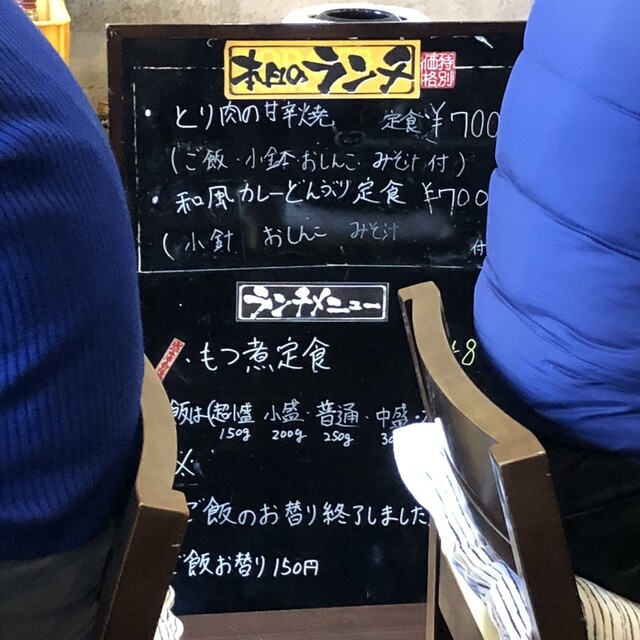 本日のランチ 特別価格
・とり肉の甘辛焼 定食¥700
(ご飯・小鉢・おしんこ・みそ汁付)
・和風カレーどんぶり定食 ¥700
(小鉢 おしんこ みそ汁 付
ランチメニュー
・もつ煮定食 8
飯は(超小盛 小盛・普通・中盛・
150g 200g 250g 30
※
ご飯のお替り終了しました
ご飯お替り150円